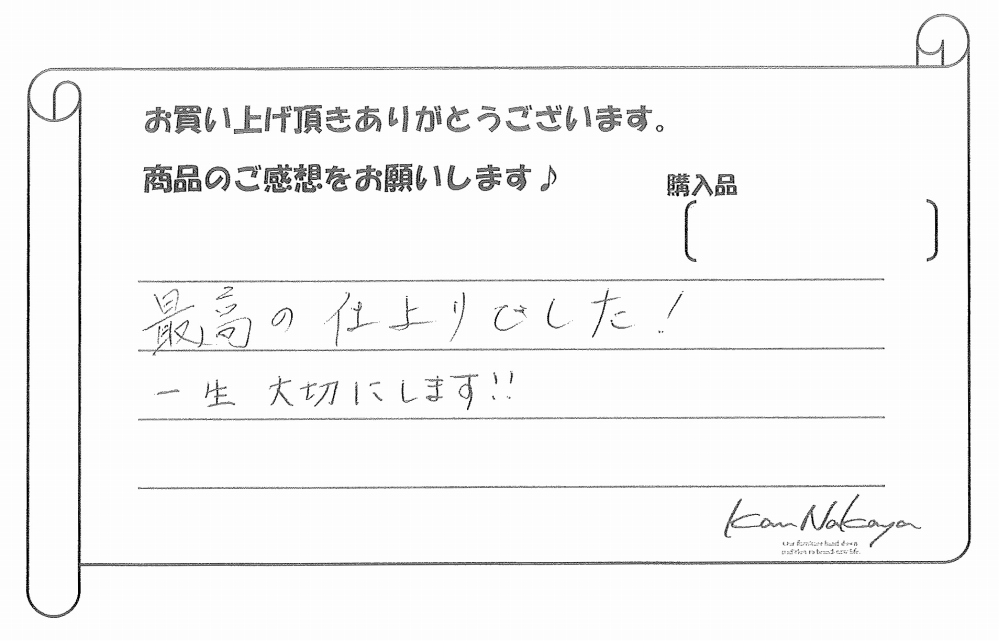 お買い上げ頂きありがとうございます。
商品のご感想をお願いします♪
購入品
最高の仕上りでした!
一生大切にします!!
Kan Nakaya